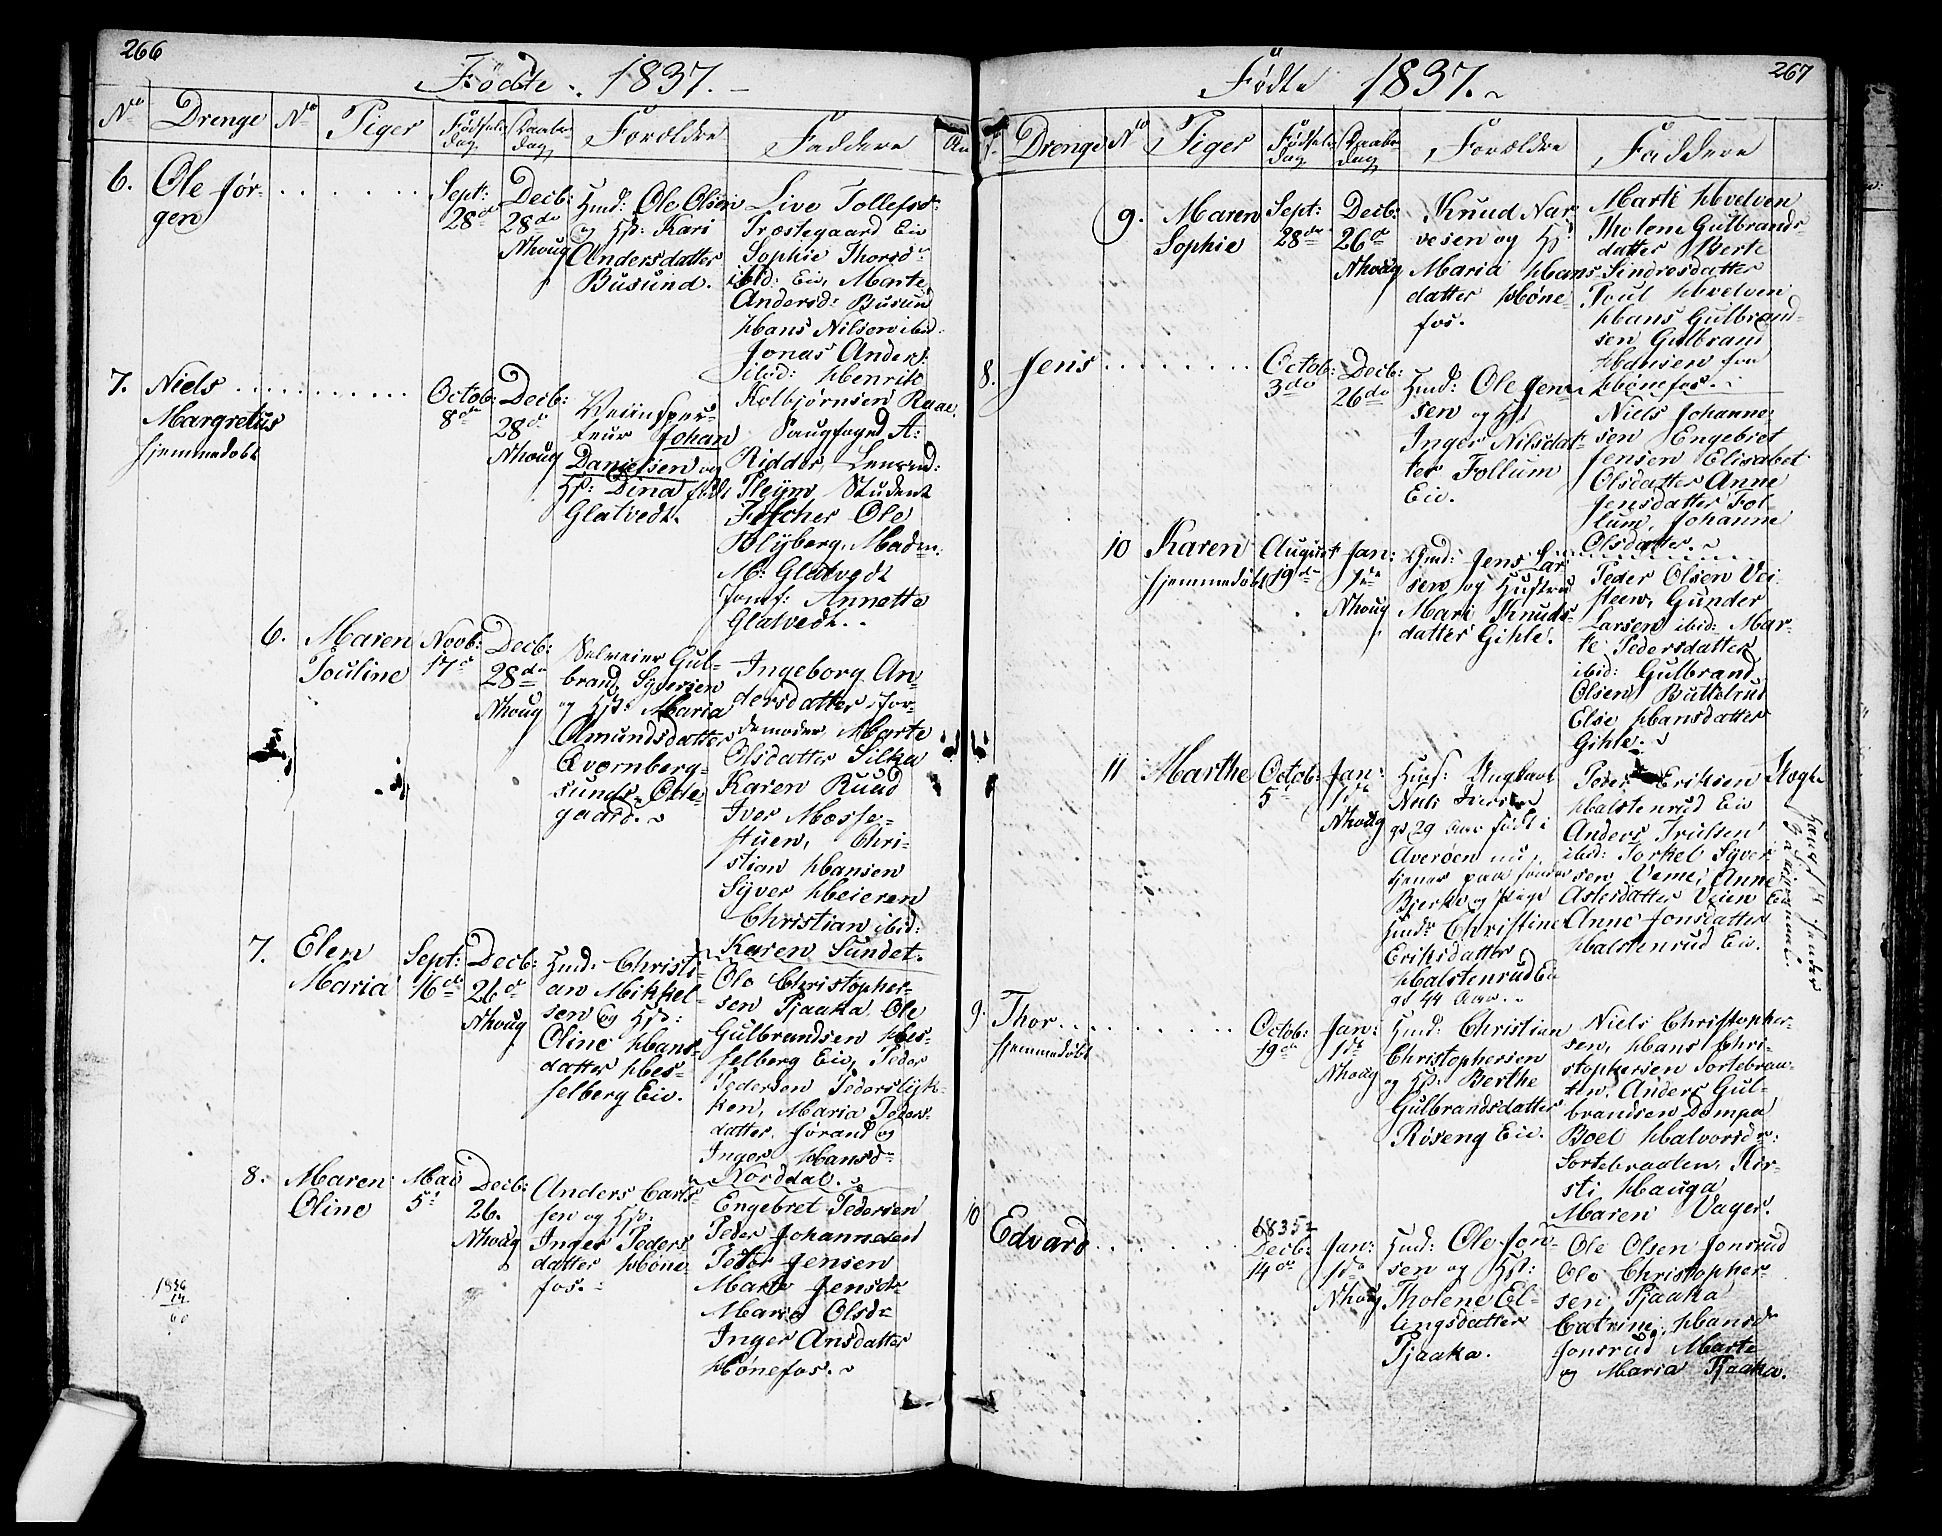 266
Födte 1837.
No Drenge No Piger Födsels dag Daabs dag Forældre Faddere An
6. Ole Jör-
gen
Sept:
28de
Decb:
28de
Nhoug
Gmd: Ole Olsen
og Hst: Kari
Andersdatter
Busund.
Live Tollefsd:
Træstegaard Eie
Sophie Thorsdr
ibid: Eie, Marte
Andersd: Busund
Hans Nilsen ibid:
Jonas Anders:
ibid: Henrik
Kolbjörnsen Raae.
7. Niels
Margretus
hjemmedöbt
Octob:
8de
Decb:
28de
Nhoug
Veiinspec-
teur Johan
Danielsen og
Hst: Dina född
Glatvedt.
Saugfoged A:
Ridder, Lensmd:
Fleijm, Student
Felcher Ole
Blÿberg, Madm:
M: Glatvedt
Jomf: Annette
Glatvedt.
6. Maren
Pouline
Novb:
17de
Decb:
28de
Nhoug
Selveier Gul-
brand Syversen
og Hst: Maria
Amundsdatter
Aavernberg-
sund
Ingeborg An-
dersdatter jor-
demoder, Marte
Olsdatter Silka
Karen Ruud
Iver Mosse-
stuen, Chri-
stian Hansen
Syver Heieren
Christian ibid:
Karen Sundet.
7. Elen
Maria
Sept:
16de
Decb:
26de
Nhoug
Hmd: Christi-
an Mikkel-
sen og Hst:
Oline Hans-
datter Hes-
selberg Eie.
Ole Christopher-
sen Pjaaka, Ole
Gulbrandsen Hes-
selberg Eie, Peder
Pedersen Pederslÿk-
ken, Maria Peders-
datter, Jörand og
Inger Hansdr
Norddal.
8. Maren
Oline
Mai
5te
Decb:
26.
Nhoug
Anders Carls-
sen og Hst:
Inger Peders
datter Höne-
fos.
Engebret Pedersen
Peder Johannesen
Peter Jensen
Marte Jensdr
Maria Olsdr
Inger Ansdatter
Hönefos.
1836
14
60
267
Födte 1837.
Drenge No Piger Födsels dag Daabs dag Forældre Faddere
9. Maren
Sophie
Sept:
28de
Decb:
26de
Nhoug
Knud Nar-
vesen og Hst
Maria Hans
datter Höne-
fos.
Marte Hvelven
Tholene Gulbrands
datter Berte
Sindresdatter
Poul Hvelven
Hans Gulbrand-
sen Gulbrand
Hansen fra
Hönefos.
8. Jens
Octob:
3de
Decb:
26de
Hmd: Ole Jen-
sen og Hst
Inger Nilsdat-
ter Follum
Eie.
Niels Johanne-
sen Engebret
Jensen Elisabet
Olsdatter Anne
Jensdatter Fol-
lum, Johanne
Olsdatter.
10 Karen
hjemmedöbt
August
19de
Jan:
1ste
Nhoug
Gmd: Jens Lar-
sen og Hustru
Mari Knuds-
datter Gihle.
Peder Olsen Vei-
steen, Gunder
Larsen ibid: Mar-
te Pedersdatter
ibid: Gulbrand
Olsen Buttelrud
Else Hansdatter
Gihle.
11 Marthe
Octob:
5te
Jan:
1ste
Nhoug
Ungkarl
Niels
gl 29 Aar född i
Averöen nu
tjener paa
Bjerke og Pige
Christine
Eriksdatter
Halstenrud Eie
gl 44 Aar.
Peder Eriksen
Halstenrud Eie
Anders Trulsen
ibid: Torkel Syver-
sen Veme, Anne
Aslesdatter Veien Eie
Anne Jonsdatter
Halstenrud Eie.
9. Thor
hjemmedöbt
Octob:
19de
Jan:
1ste
Nhoug
Hmd: Christian
Christophersen
og Hst: Berthe
Gulbrandsdatter
Röseng Eie.
Niels Christopher-
sen, Hans Chri-
stophersen Sortebraa-
ten, Anders Gul-
brandsen Dompa
Boel Halvorsdr:
Sortebraaten, Kir-
sti Hauga
Maren Vager.
10 Edvard
1835
Decb:
14de
Jan:
1ste
Nhoug
Hmd: Ole Jon-
sen og Hst:
Tholene El-
lingsdatter
Pjaaka.
Ole Olsen Jonsrud
Ole Christopher-
sen Pjaaka
Catrine Hansdr
Jonsrud Marte
og Maria Pjaaka.